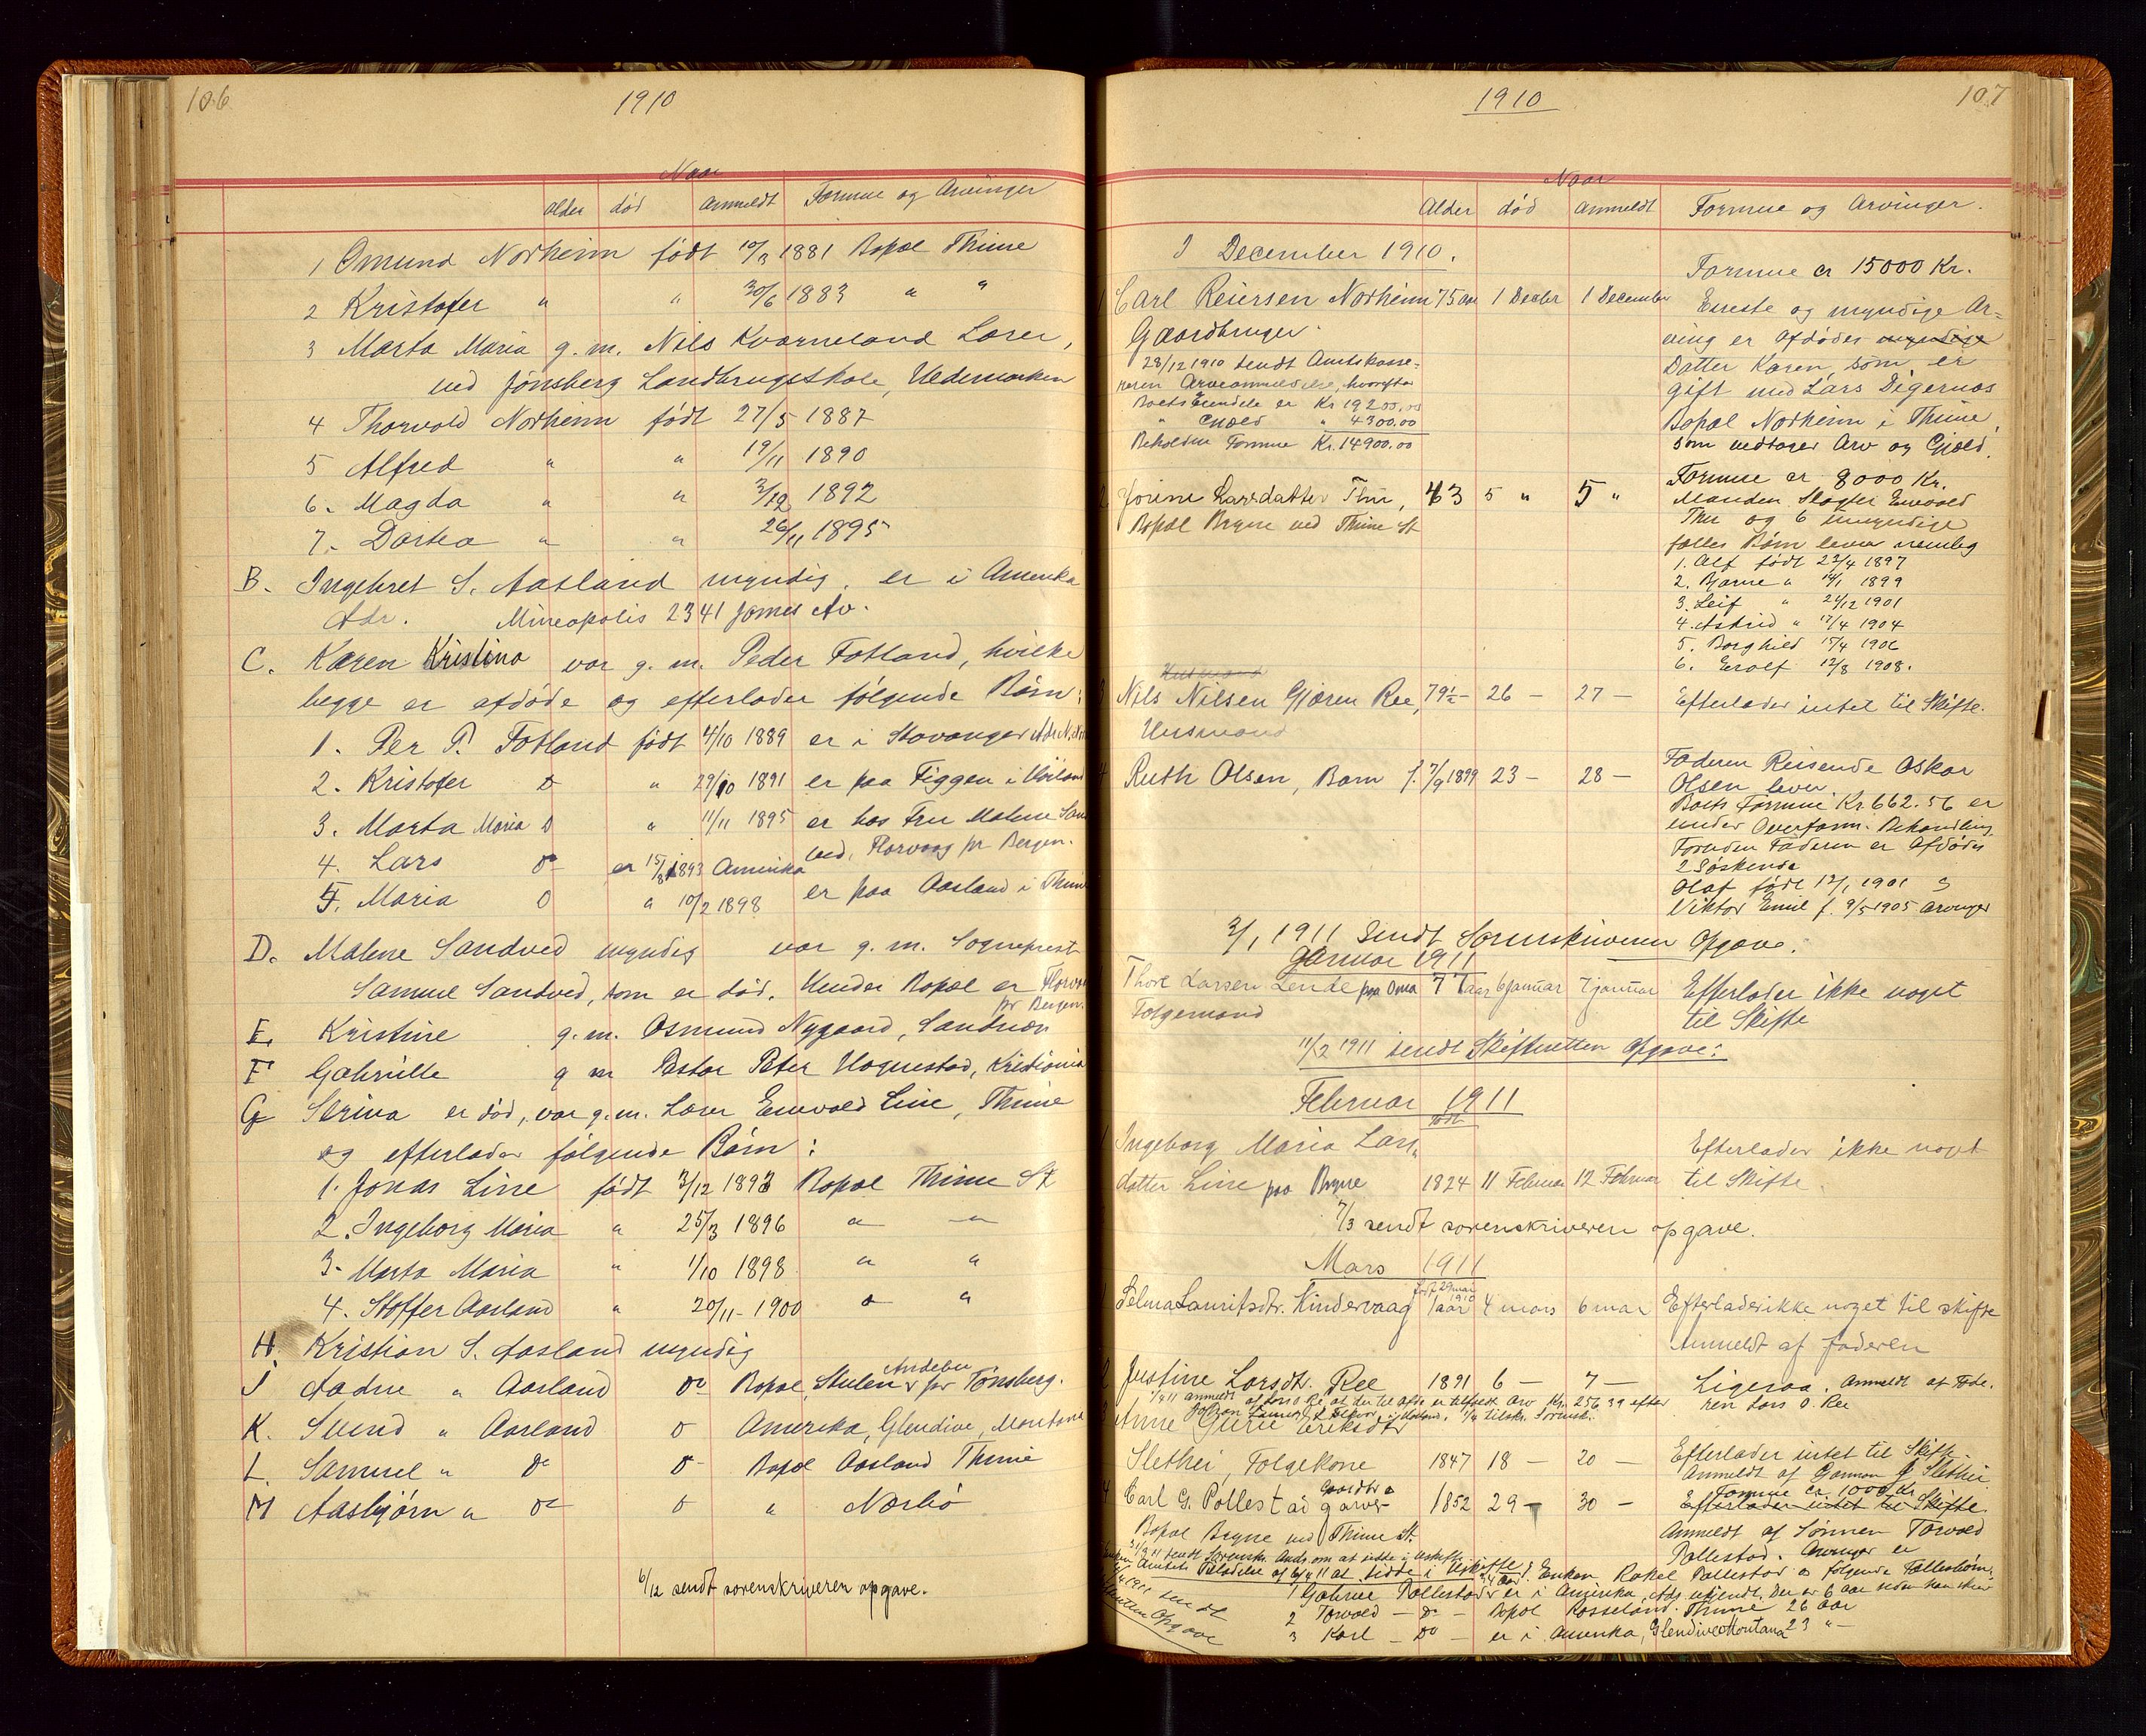 106
1910
Naar
Alder død Anmeldt Formue og Arvinger
1 Omund Norheim født 10/3 1881 Bopæl Thime
2 Kristofer " " 30/6 1883 " "
3 Marta Maria g. m. Nils Kværneland Lærer,
ved Jønsberg Landbrugsskole, Hedemarken
4 Thorvald Norheim født 27/5 1887
5 Alfred " " 19/11 1890
6. Magda " " 3/12 1892
7. Dortea " " 26/11 1895
B. Ingebret S. Aasland myndig. er i Amerika
Adr. Mineapolis 2341 James Av.
C. Karen Kristina var g. m. Peder Fotland, hvilke
begge er afdøde og efterlader følgende Børn:
1. Per P. Fotland født 4/10 1889 er i Stavanger
2. Kristofer Do " 29/10 1891 er paa Figgen i Høiland
3. Marta Maria Do " 11/11 1895 er hos Fru Malene Sand
ved, Florvaag pr Bergen.
4. Lars Do er 15/8 1893 Amerika
5. Maria Do " 10/2 1898 er paa Aasland i Thime
D. Malene Sandved myndig var g. m. Sogneprest
Samuel Sandved, som er død. Hendes Bopæl er Florvaag
pr Bergen.
E. Kristine g. m. Osmund Nygaard, Sandnæs
F Gabrielle g m Pastor Peter Hognestad, Kristiania
G Serina er død, var g. m. Lærer Enevald Line, Thime
og efterlader følgende Børn:
1. Jonas Line født 3/12 1893 Bopæl Thime St
2. Ingeborg Maria " 25/3 1896 " "
3. Marta Maria " 1/10 1898 " "
4. Stoffer Aasland " 20/11 - 1900 " "
H. Kristian S. Aasland myndig
Andebu
J Aadne " Aasland Do Bopæl, pr Tønsberg.
K. Svend " Aasland Do Amerika, Glendive, Montana
L. Samuel " Do Do Bopæl Aasland Thime
M Aasbjørn " Do Do " Nærbø
6/12 sendt sorenskriveren opgave.
1910
107
Naar
Alder død Anmeldt Formue og Arvinger.
I December 1910.
Formue er 15000 Kr.
1 Carl Reiersen Norheim 75 aar 1 Decbr 1 December Eneste og myndige Ar=
Gaardbruger. ving er Afdødes myndige
28/12 1910 sendt Amtskasse= Datter Karen, som er
reren Arveanmeldelse, hvorefter gift med Lars Digernæs
Boets Eiendele er Kr 19200,00 Bopæl Norheim i Thime,
" Gjæld " 4300.00 som vedtager Arv og Gjæld.
Beholden Formue Kr. 14900.00
Formue er 8000 Kr.
2 Jorine Larsdatter Thu, 43 5 " 5 " Manden Slagter Enevald
Bopæl Bryne ved Thime St Thu og 6 umyndige
fælles Børn lever nemlig
1. Alf født 22/4 1897
2. Bjarne " 14/1 1899
3. Leif " 24/12 1901
4. Astrid " 17/4 1904
5. Borghild 15/4 1906
6. Erolf 12/8 1908.
Husmand
3 Nils Nilsen Gjæren Ree, 79½ - 26 - 27 - Efterlader intet til Skifte.
Husmand
4 Ruth Olsen, Barn f. 7/9 1899 23 - 28 - Faderen Reisende Oskar
Olsen lever.
Boets Formue Kr. 662.56 er
under Overform. Behandling
Foruden Faderen er Afdødes
2 Søskende
Olaf født 12/1 1901 &
Viktor Emil f. 9/5 1905 Arvinger
3/1 1911 Sendt Sorenskriveren Opgave.
Januar 1911
Thore Larsen Lende paa Oma 77 aar 6 januar 7 januar Efterlader ikke noget
Folgemand til Skifte
11/2 1911 sendt Skifteretten Opgave:
Februar 1911
født
1 Ingeborg Maria Lars= Efterlader ikke noget
datter Line paa Bryne 1824 11 Februar 12 Februar til Skifte.
7/3 sendt sorenskriveren opgave.
Mars 1911
1 Selma Lauritsdtr. Kindervaag 1 aar 4 mars 6 mar Efterlader ikke noget til skifte
Anmeldt af faderen
2 Justine Larsdtr. Ree 1891 6 - 7 - Ligesaa. Anmeldt af Fade.
ren Lars O. Ree
3 Anne Gurie Eriksdtr
Slethei, Folgekone 1847 18 - 20 - Efterlader intet til Skifte.
Anmeldt af Gunnar Slethei
Formue ca. 1000 Kr
4 Carl G. Pollestad garver 1852 29 - 30 - Efterlader intet til Skifte.
Bopæl Bryne ved Thime St. Anmeldt af Sønnen Torvald
Pollestad. Arvinger er
Enken Rakel Pollestad & følgende Fællesbørn
1 Gabriel Pollestad er i Amerika, Ads ukjendt.
2 Torvald - Do - Bopæl Rosseland. Thime 26 aar
3 Karl - Do - er i Amerika, Glendive Montana 23 " -